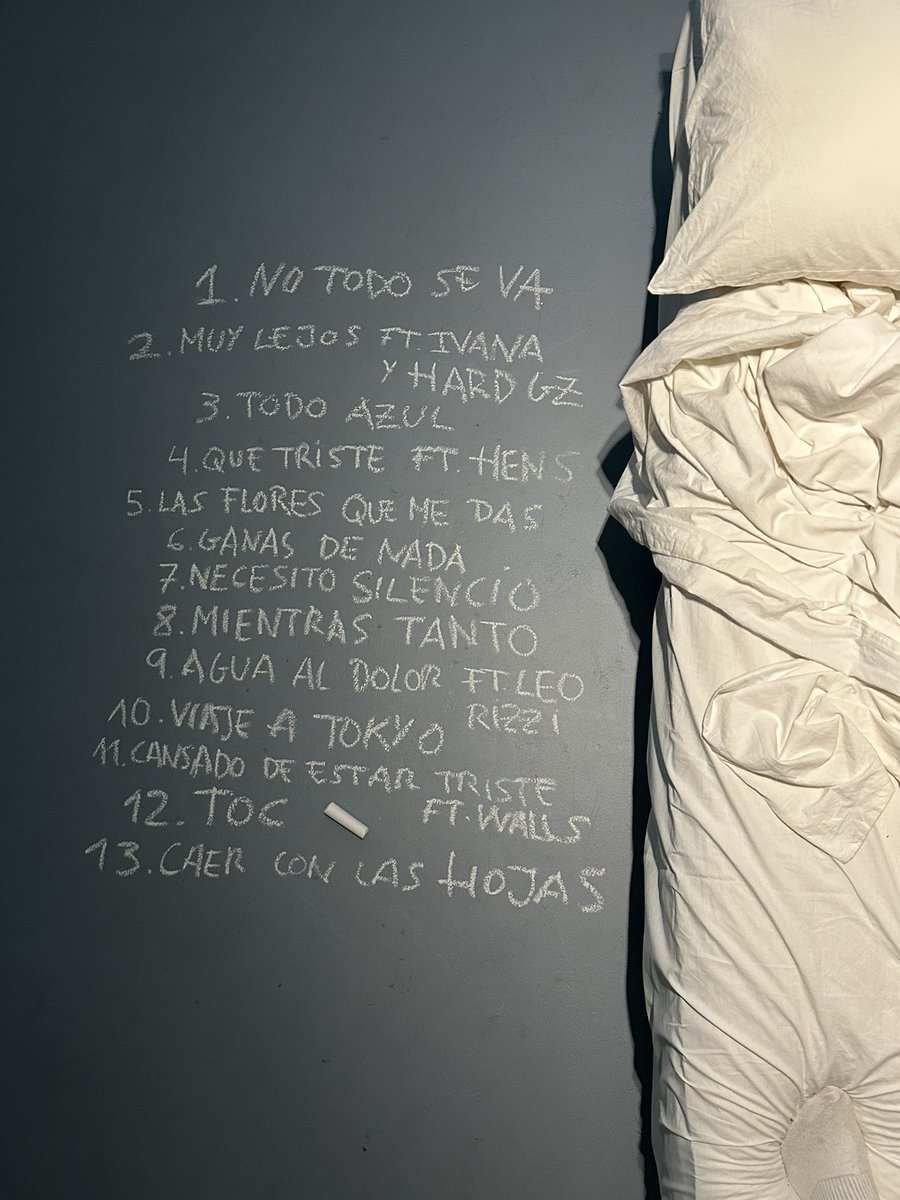 1. NO TODO SE VA
2. MUY LEJOS FT. IVANA
Y HARD GZ
3. TODO AZUL
4. QUE TRISTE FT. HENS
5. LAS FLORES QUE ME DAS
6. GANAS DE NADA
7. NECESITO SILENCIO
8. MIENTRAS TANTO
9. AGUA AL DOLOR FT. LEO
RIZZI
10. VIAJE A TOKYO
11. CANSADO DE ESTAR TRISTE
FT. WALLS
12. TOC
13. CAER CON LAS HOJAS